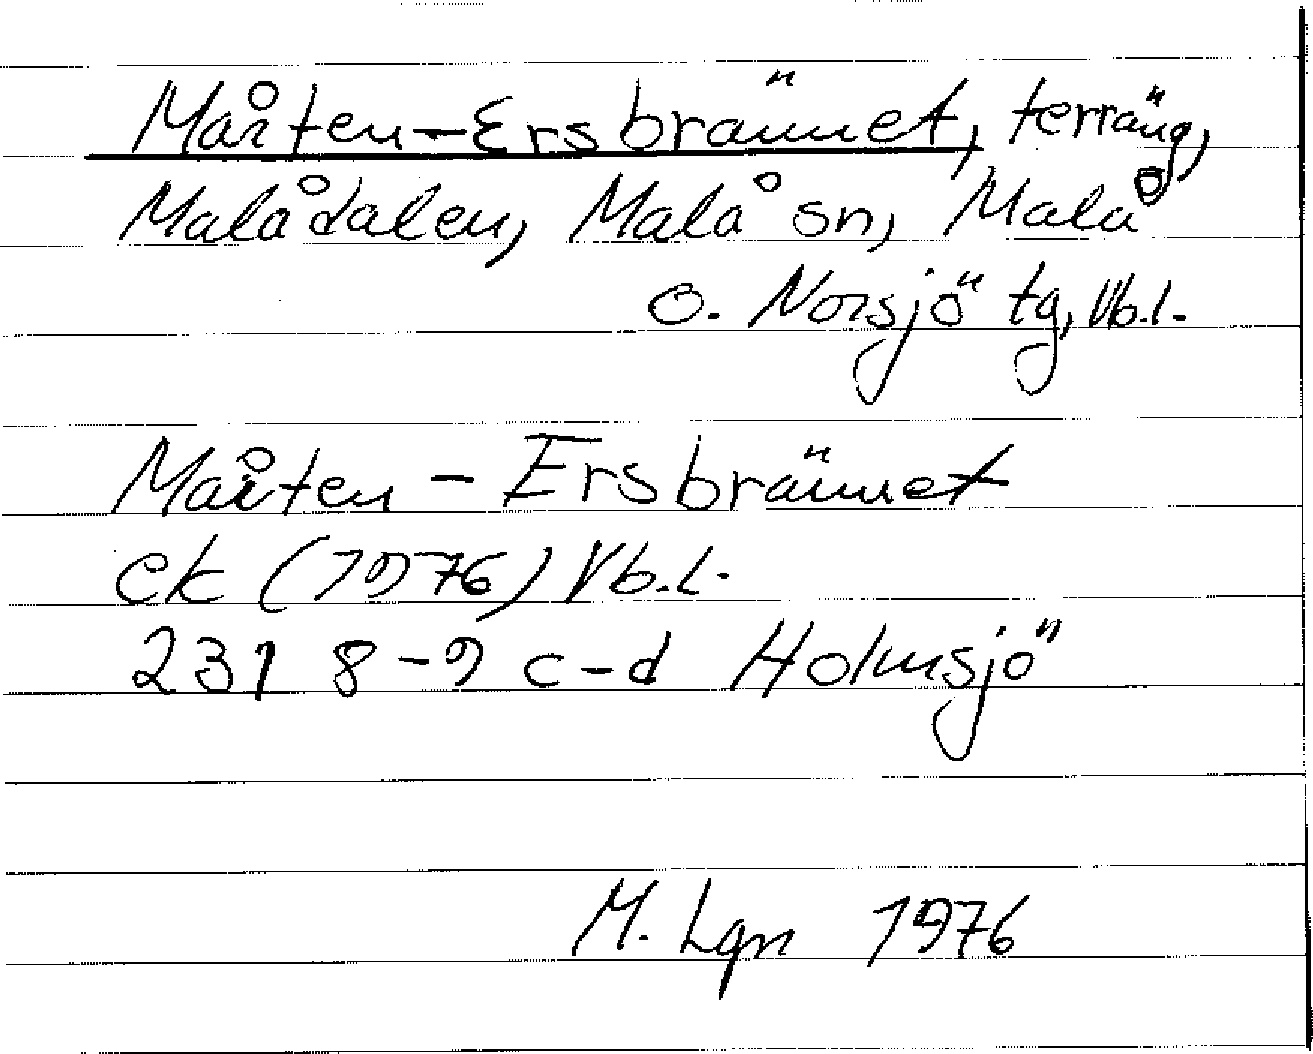 Mårten-Ersbrännet, terräng,
Malådalen, Malå sn, Malå
o. Norsjö tg, Vb.l.
Mårten-Ersbrännet
ek (1976) Vb.l.
23I 8-9 c-d Holmsjö
M. Lgn 1976